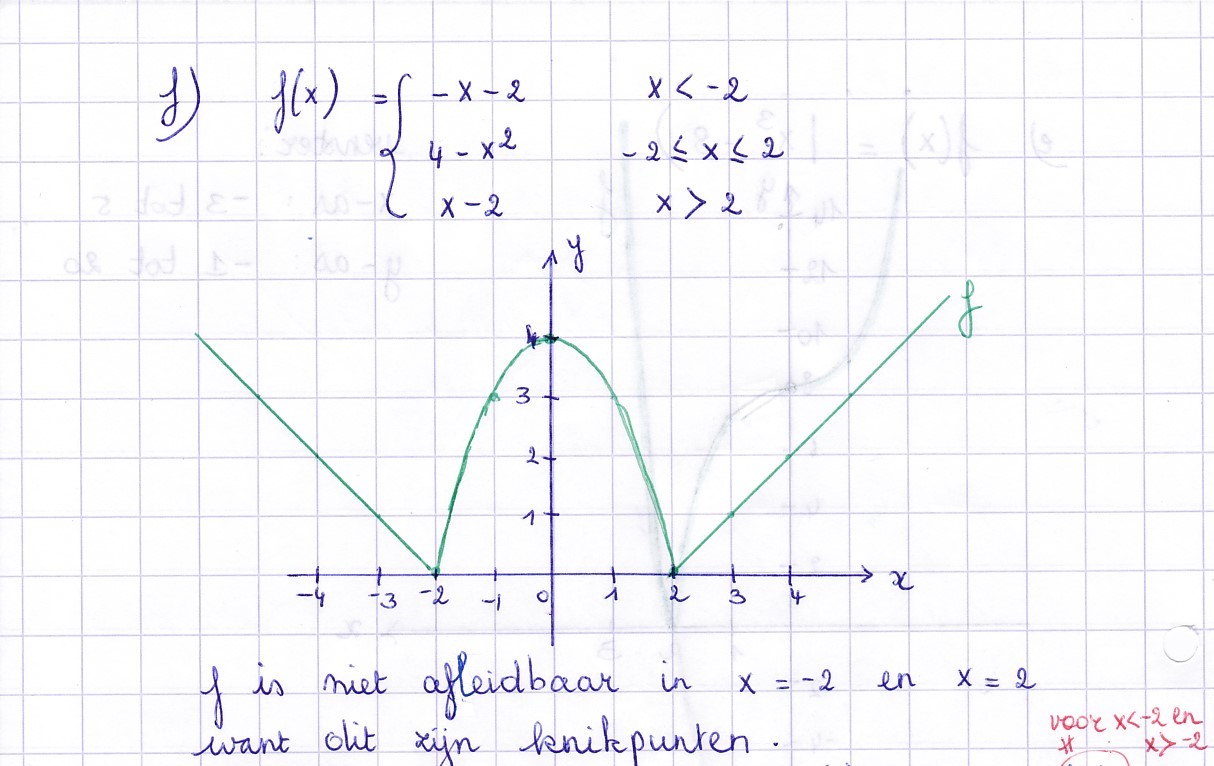 f) f(x) = { -x-2 x < -2
4-x² -2 ≤ x ≤ 2
x-2 x > 2
y
f
4
3
2
1
-4 -3 -2 -1 0 1 2 3 4 x
f is niet afleidbaar in x = -2 en x = 2
want dit zijn knikpunten.
voor x<-2 en
x>-2